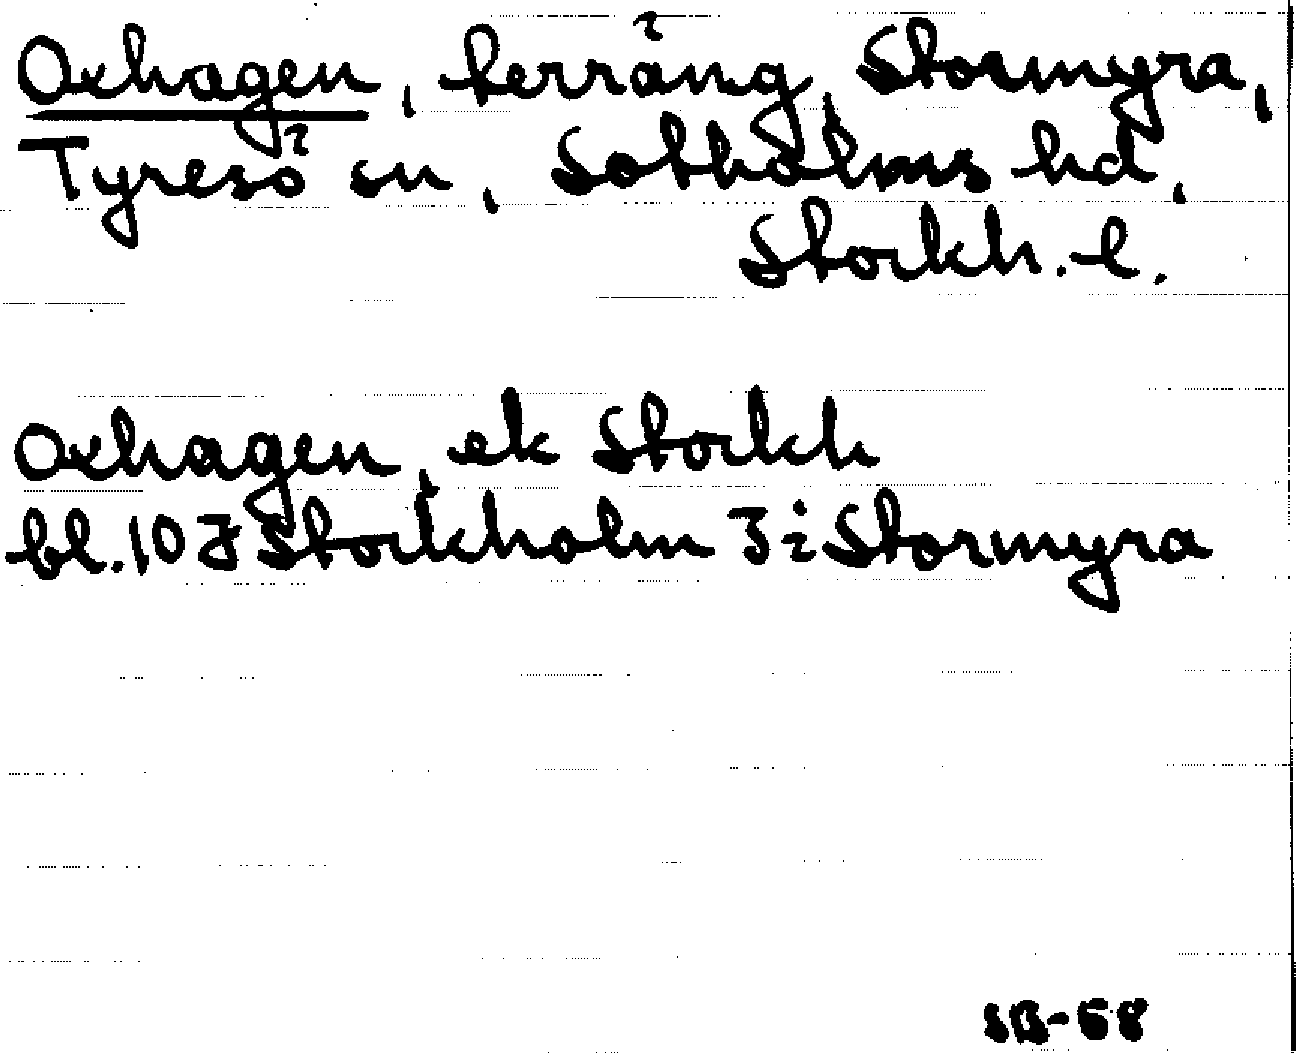 Oxhagen, terräng, Stormyra,
Tyresö sn, Sotholms hd,
Stockh. l.
Oxhagen, ek Stockh
bl. 10 J Stockholm 3 i Stormyra
SB-68